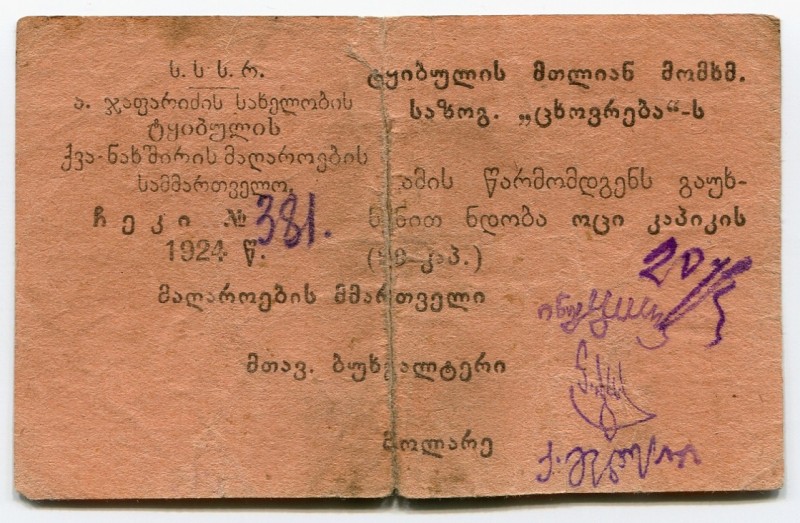 ს. ს ს. რ.
ა. ჯაფარიძის სახელობის
ტყიბულის
ქვა-ნახშირის მაღაროების
სამმართველო.
ჩეკი № 381.
1924 წ.
ტყიბულის მთლიან მომხმ.
საზოგ. „ცხოვრება“-ს
ამის წარმომდგენს გაუხ-
სენით ნდობა ოცი კაპიკის
20
მაღაროების მმართველი
მთავ. ბუხგალტერი
მოლარე